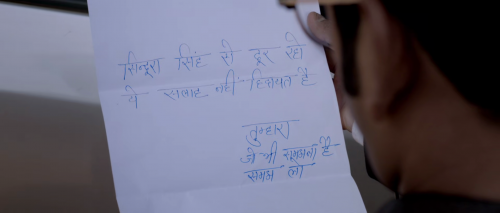 सिन्दूरा सिंह से दूर रहो
ये सलाह नहीं हिदायत है
तुम्हारा
जो भी समझना है
समझ लो